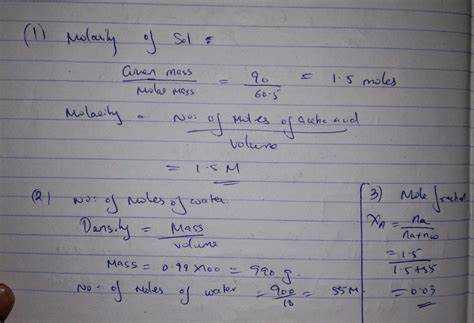 (1) Molarity of Sol =
Given mass / Molar Mass = 90 / 60.5 = 1.5 moles
Molarity = No: of Moles of acetic acid / volume
= 1.5 M
(2) No: of Moles of water.
Density = Mass / volume
Mass = 0.99 x 100 = 990 g.
No: of Moles of water = 900 / 18 = 55 M.
3) Mole fraction
XA = na / na+nw
= 1.5 / 1.5+55
= 0.03